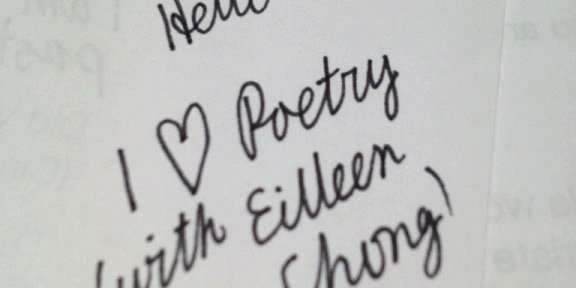 Hello
I ♡ Poetry
(with Eilleen
Chong)